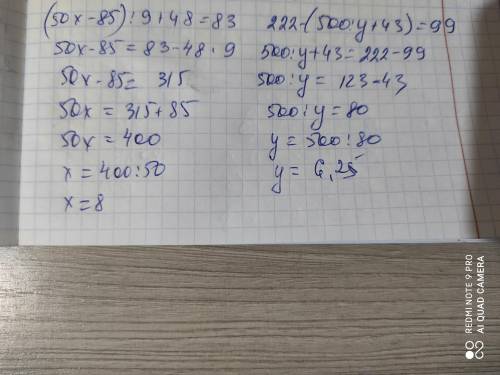 (50x-85):9+48=83
50x-85=83-48·9
50x-85= 315
50x= 315+85
50x=400
x=400:50
x=8
222-(500:y+43)=99
500:y+43=222-99
500:y= 123-43
500:y=80
y=500:80
y= 6,25
REDMI NOTE 9 PRO
AI QUAD CAMERA